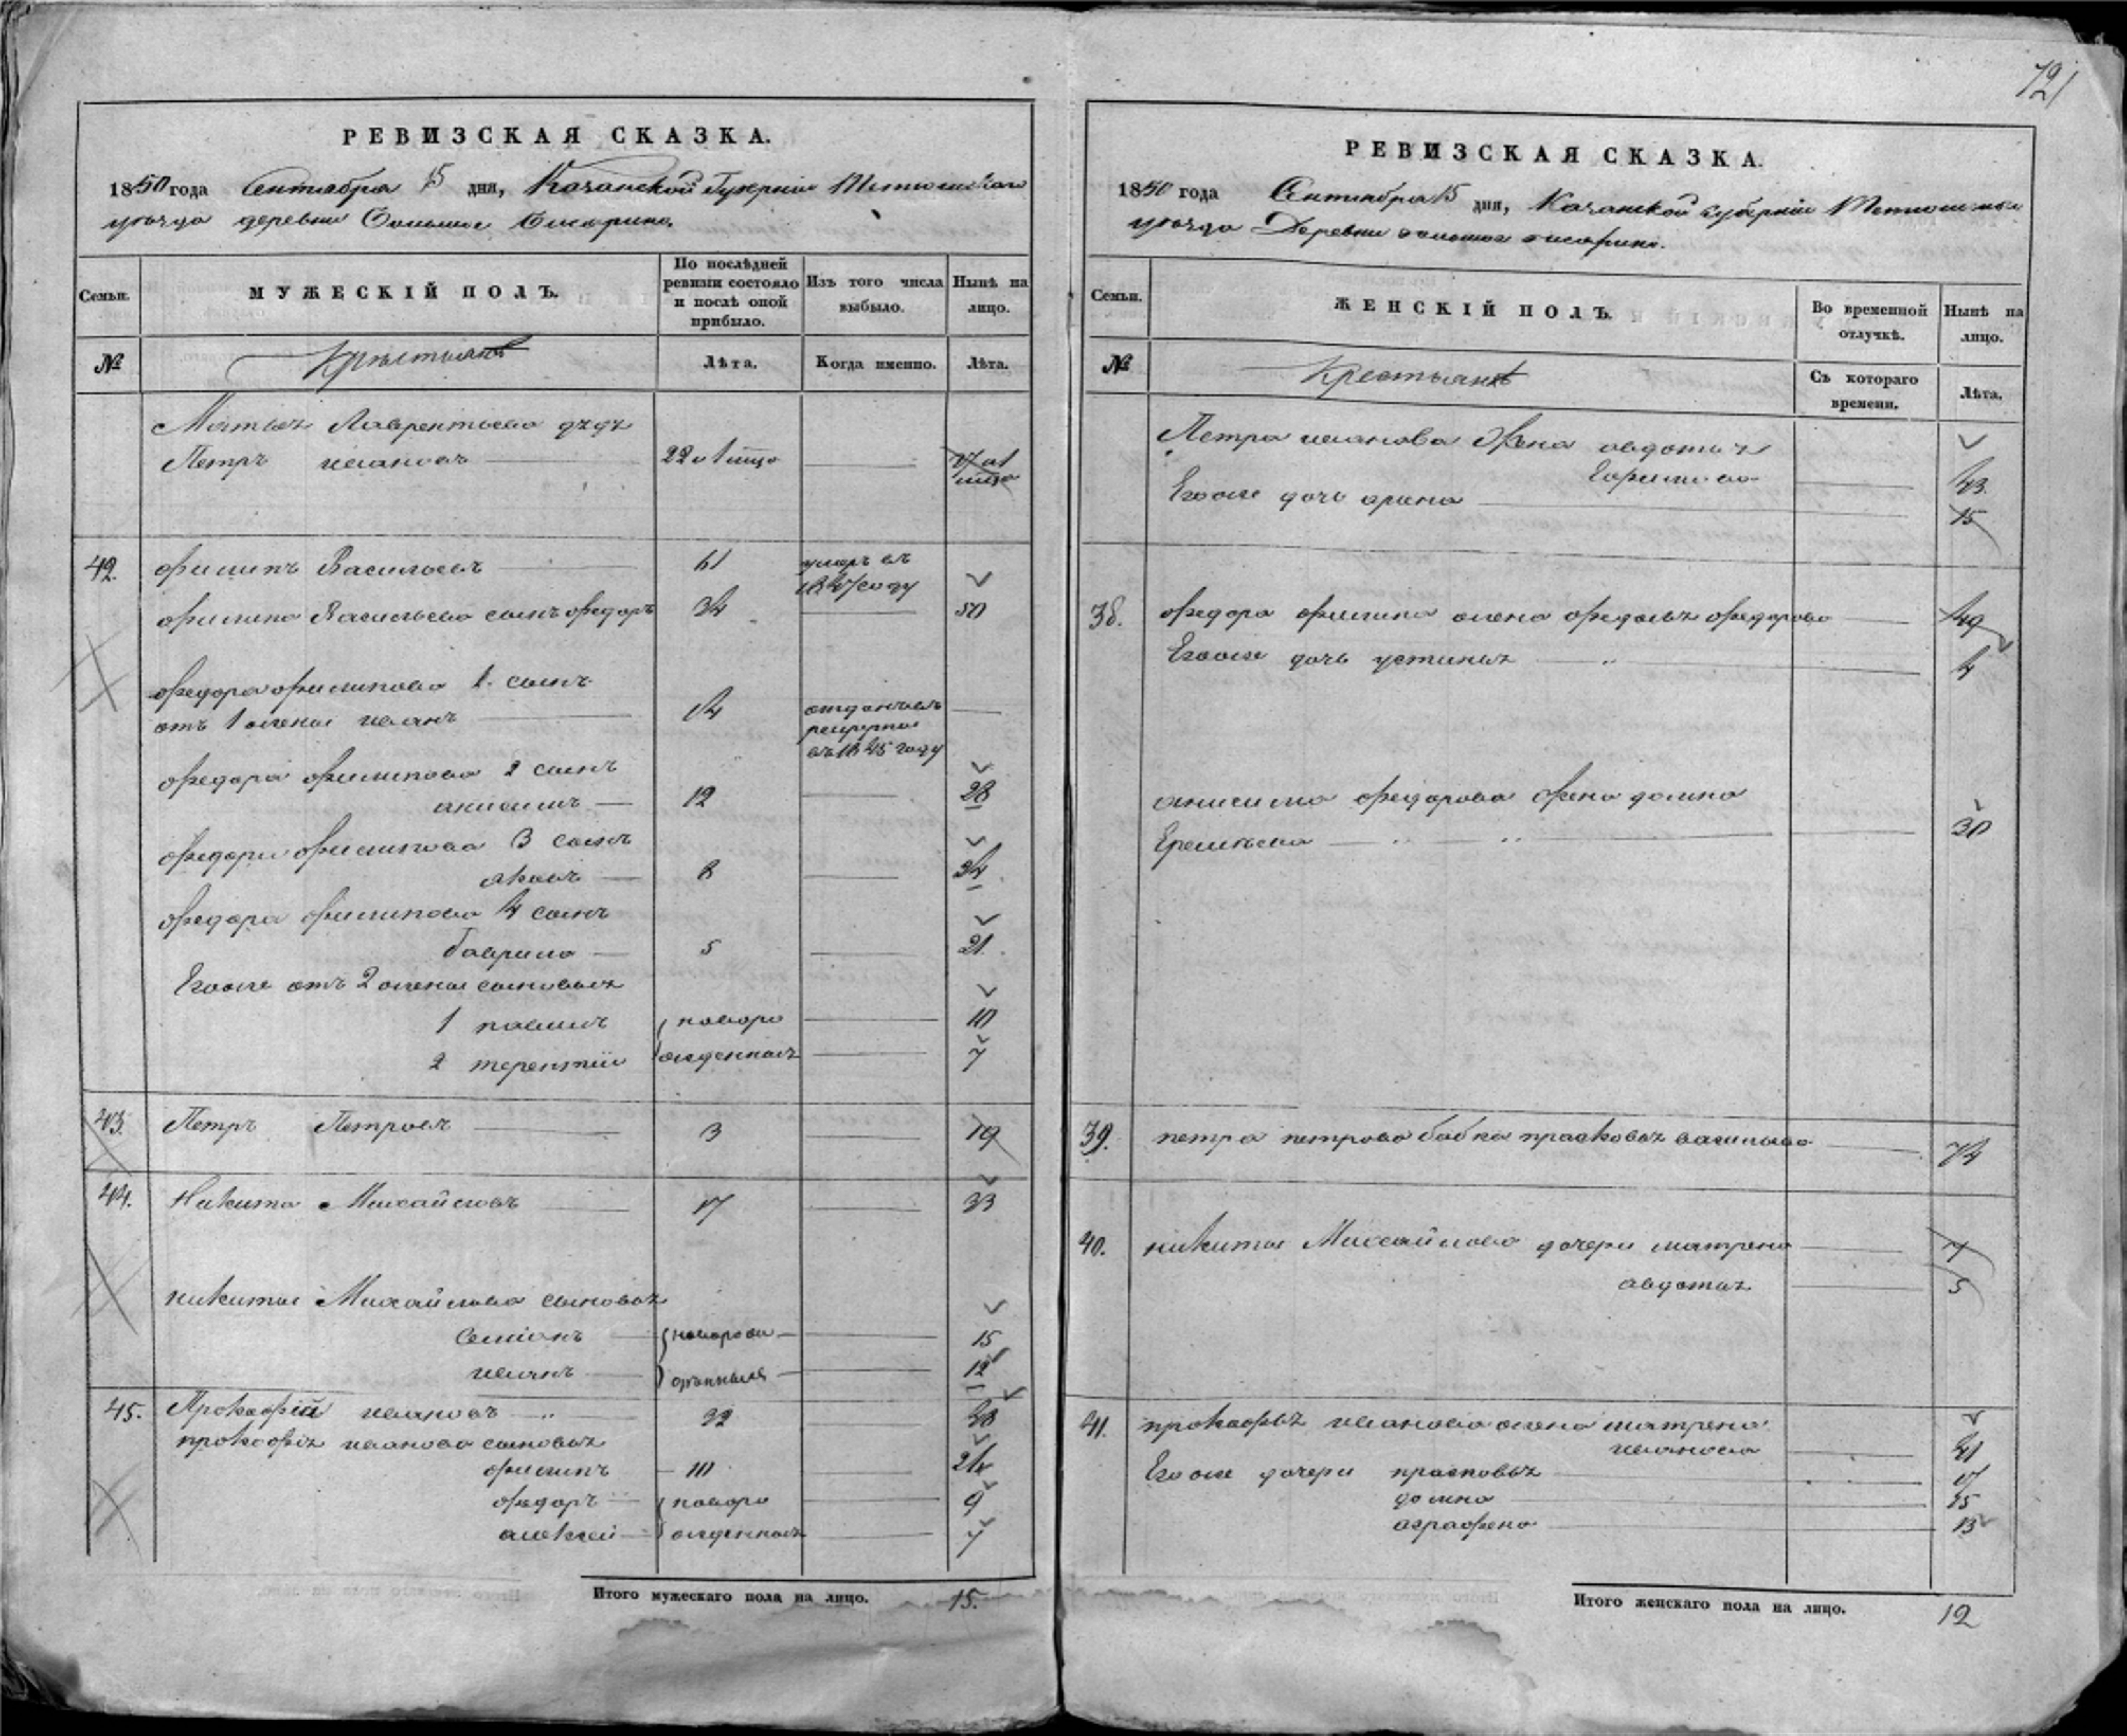 721
РЕВИЗСКАЯ СКАЗКА.
1850 года Сентября 15 дня, Казанской Губернии Тетюшскаго
уѣзда деревни
МУЖЕСКІЙ ПОЛЪ.
Семьи.
По послѣдней
ревизіи состояло
и послѣ оной
прибыло.
Изъ того числа
выбыло.
Нынѣ на
лицо.
№
Крестьянъ
Лѣта.
Когда именно.
Лѣта.
Лаврентьева дядя
Петръ Ивановъ 22
42. Филипъ Васильевъ 61 умеръ въ
1847 году
Филипа Васильева сынъ Федоръ 34 50
Федора Филипова 1. сынъ
отъ 1 жены Иванъ 14 отданъ въ
рекруты
въ 1845 году
Федора Филипова 2 сынъ
анисимъ 12 28
Федора Филипова 3 сынъ
яковъ 8 24
Федора Филипова 4 сынъ
Гаврила 5 21.
Его же отъ 2 жены сыновья
1 новоро 10
2 терентій жденныя 7
43. Петръ Петровъ 3 19
44. Никита Михайловъ 17 33
никиты Михайлова сыновья
Семіонъ новорож 15
иванъ денныя 12
45. Прокофій ивановъ 32 48
прокофья иванова сыновья
филипъ 10 24
федоръ новоро 9
алексей жденныя 7
Итого мужескаго пола на лицо. 15.
РЕВИЗСКАЯ СКАЗКА.
1850 года Сентября 15 дня, Казанской губерніи
уѣзда Деревни
Семьи.
ЖЕНСКІЙ ПОЛЪ.
Во временной
отлучкѣ.
Нынѣ на
лицо.
№
Крестьянъ
Съ котораго
времени.
Лѣта.
Петра иванова жена авдотья
43.
Его же дочь арина 15
38. федора филипа жена федосья федорова 49
Его же дочь устинья 4
анисима федорова жена домна
30
39. петра петрова бабка прасковья васильева 74
40. никиты Михайлова дочери матрена 7
авдотья 5
41. прокофья иванова жена матрена
иванова 41
Его же дочери прасковья 17
домна 15
аграфена 13
Итого женскаго пола на лицо. 12